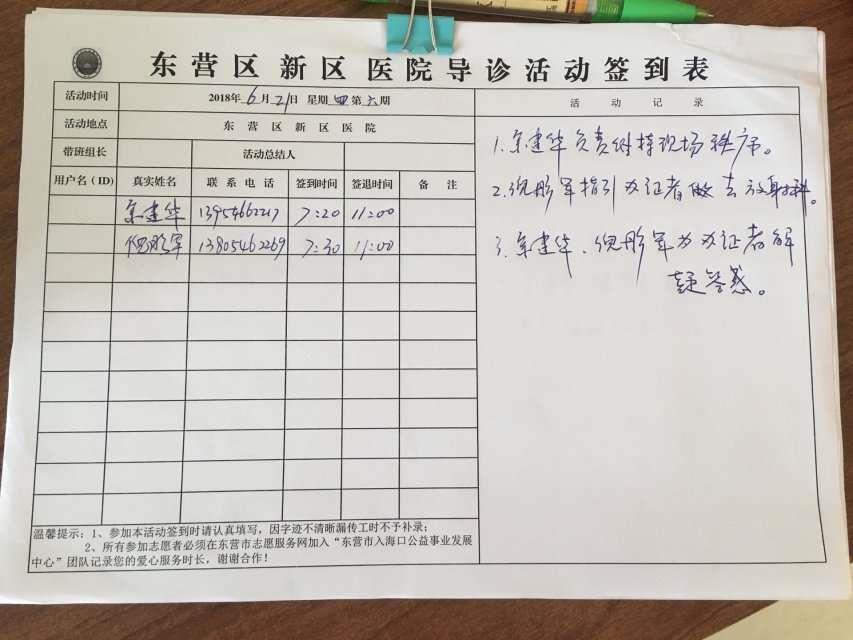 东营区新区医院导诊活动签到表
活动时间 2018年6月21日 星期四第六期 活动记录
活动地点 东营区新区医院
带班组长 活动总结人
用户名(ID) 真实姓名 联系电话 签到时间 签退时间 备注
建华 13954662217 7:20 11:00
倪彤军 13805462269 7:30 11:00
1.建华负责维持现场秩序。
2.倪彤军指引办证者做去放射科。
3.建华、倪彤军为办证者解
疑答惑。
温馨提示:1、参加本活动签到时请认真填写,因字迹不清晰漏传工时不予补录;
2、所有参加志愿者必须在东营市志愿服务网加入“东营市入海口公益事业发展
中心”团队记录您的爱心服务时长,谢谢合作!